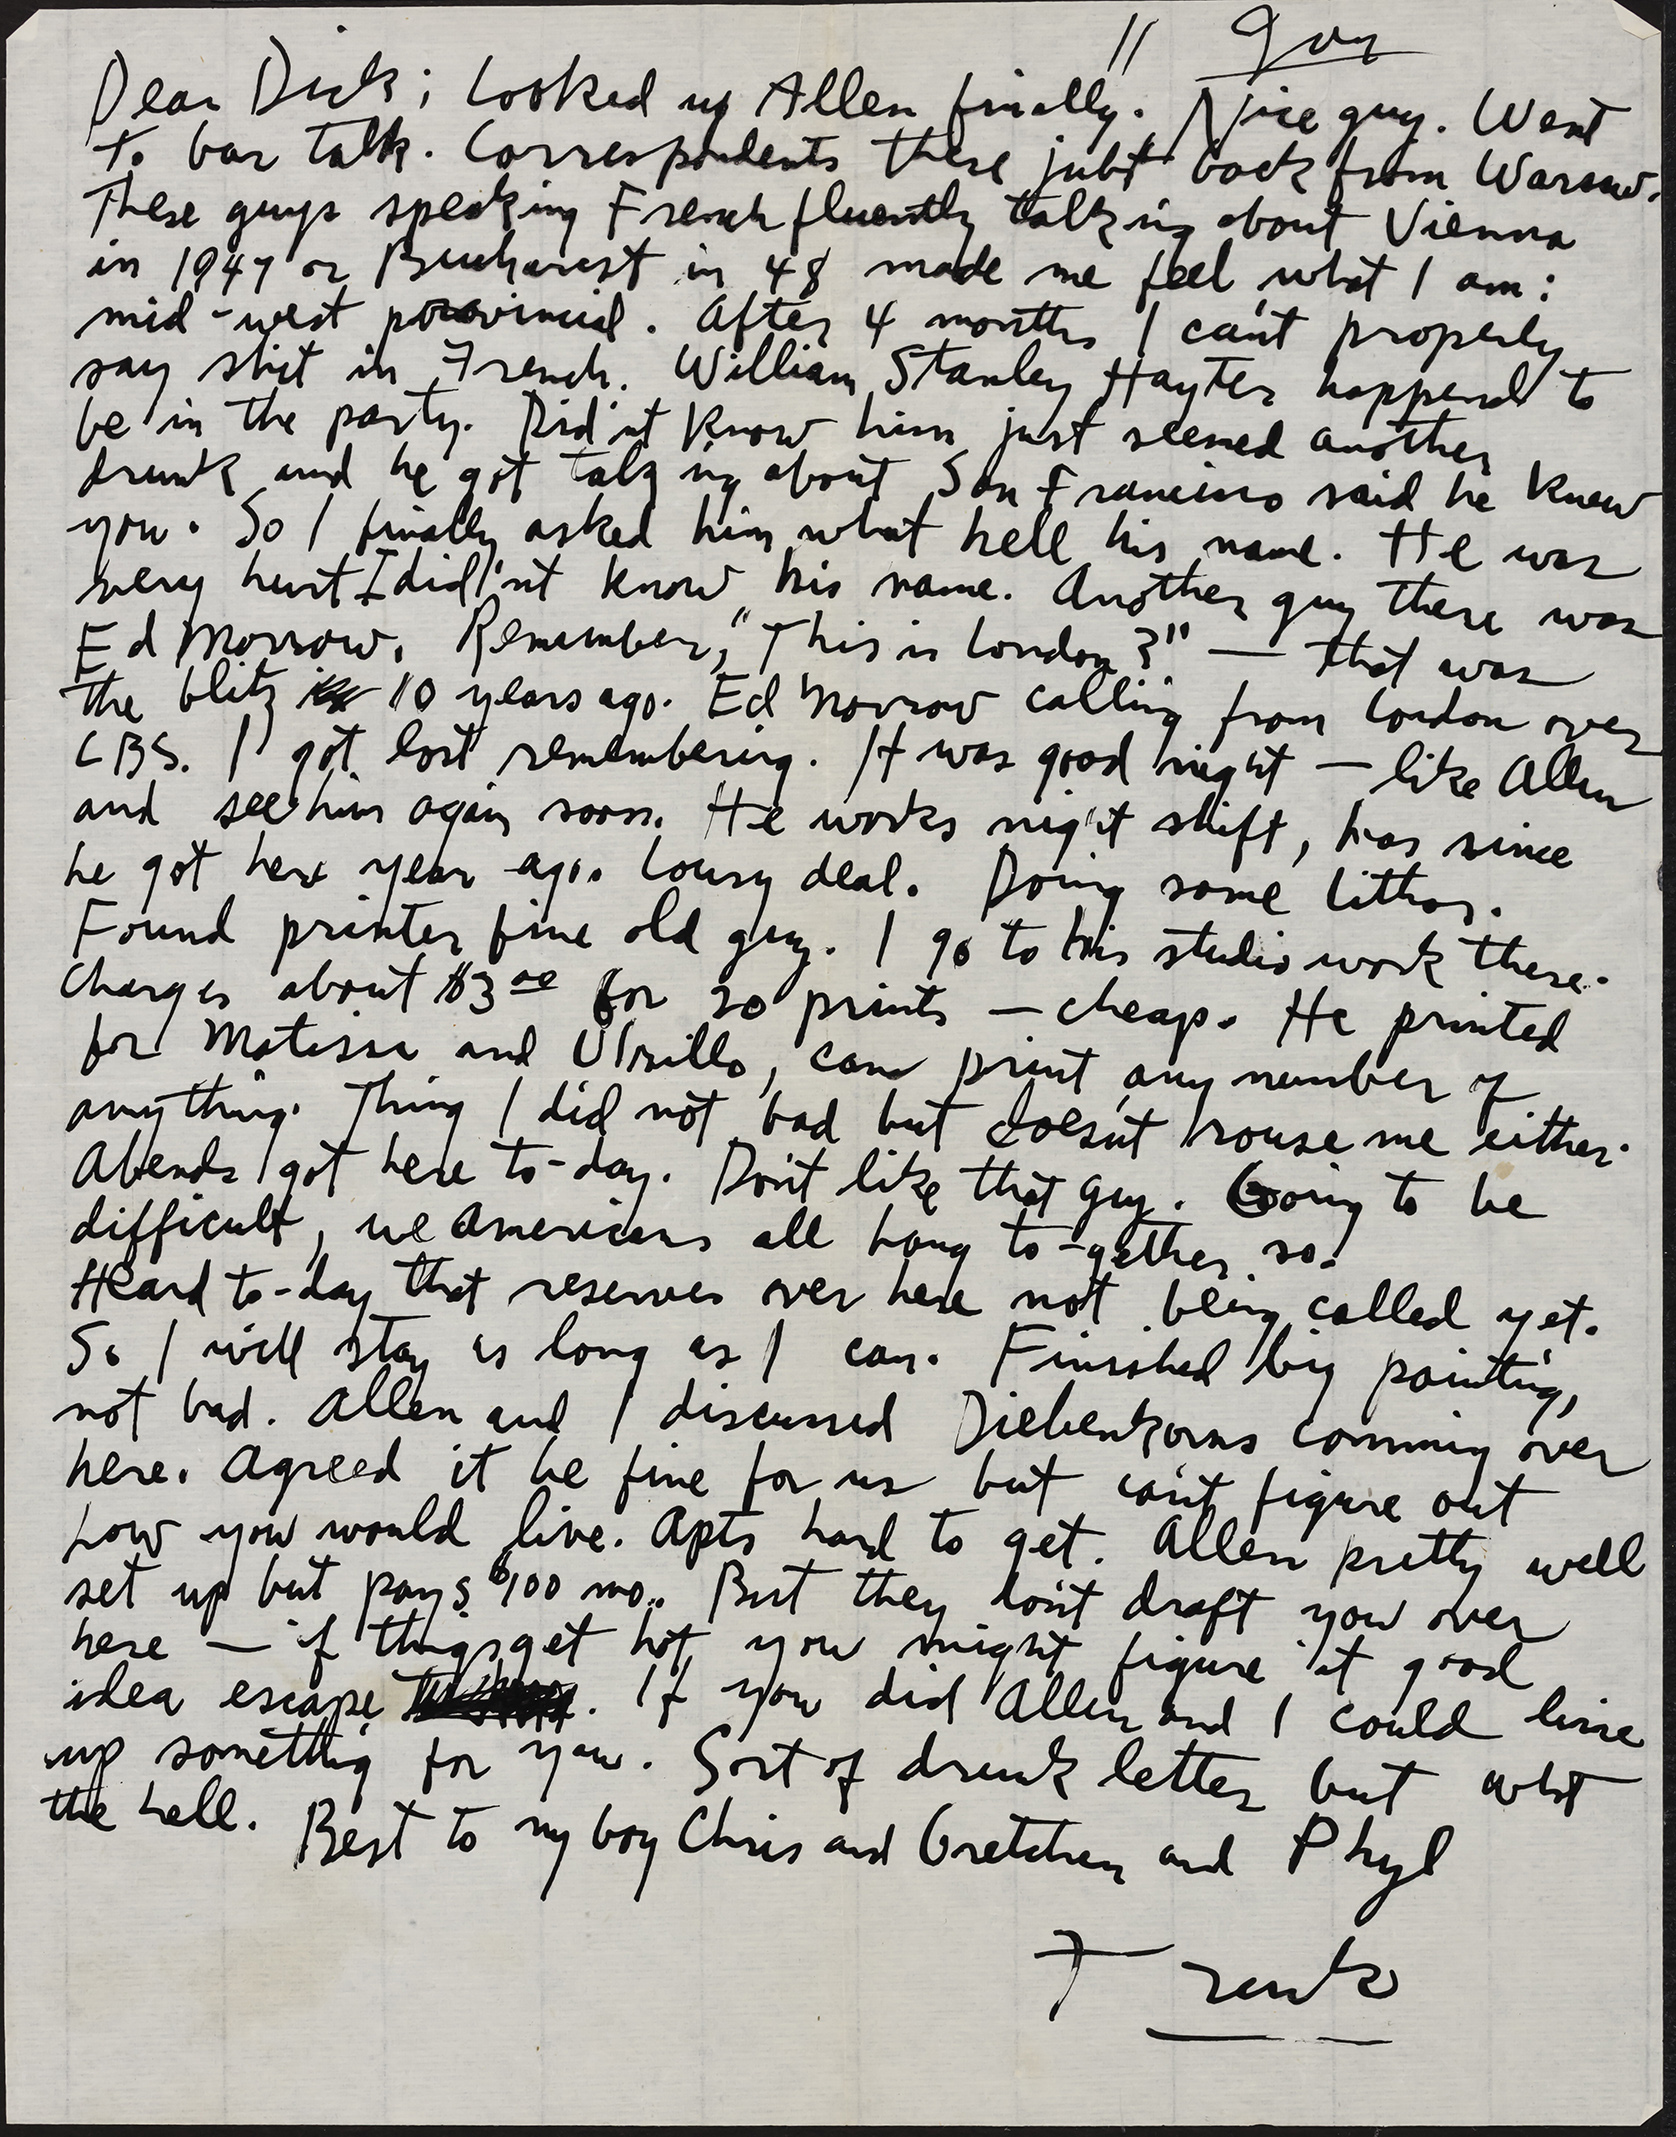 11 Jan
Dear Dick; Looked up Allen finally. Nice guy. Went
to bar talk. Correspondents there just back from Warsaw.
These guys speaking French fluently talking about Vienna
in 1947 or Bucharest in 48 made me feel what I am:
mid-west provincial. After 4 months I can't properly
say shit in French. William Stanley Hayter happend to
be in the party. Did'nt know him just seemed another
drunk and he got talking about San Francisco said he knew
you. So I finally asked him what hell his name. He was
very hurt I did'nt know his name. Another guy there was
Ed Morrow. Remember, "This is London?" — that was
the blitz 10 years ago. Ed Morrow calling from London over
CBS. I got lost remembering. It was good night — like Allen
and see him again soon. He works night shift, has since
he got here year ago. Lousy deal. Doing some lithos.
Found printer fine old guy. I go to his studio work there.
Charges about $3.00 for 20 prints — cheap. He printed
for Matisse and Utrillo, can print any number of
anything. Thing I did not bad but doesn't rouse me either.
Abends got here to-day. Don't like that guy. Going to be
difficult, we Americans all hang to-gether so.
Heard to-day that reserves over here not being called yet.
So I will stay as long as I can. Finished big painting,
not bad. Allen and I discussed Diebenkorns comming over
here. Agreed it be fine for us but can't figure out
how you would live. Apts hard to get. Allen pretty well
set up but pays $100 mo.. But they don't draft you over
here — if things get hot you might figure it good
idea escape. If you did Allen and I could line
up something for you. Sort of drunk letter but what
the hell. Best to my boy Chris and Gretchen and Phyl
Frank